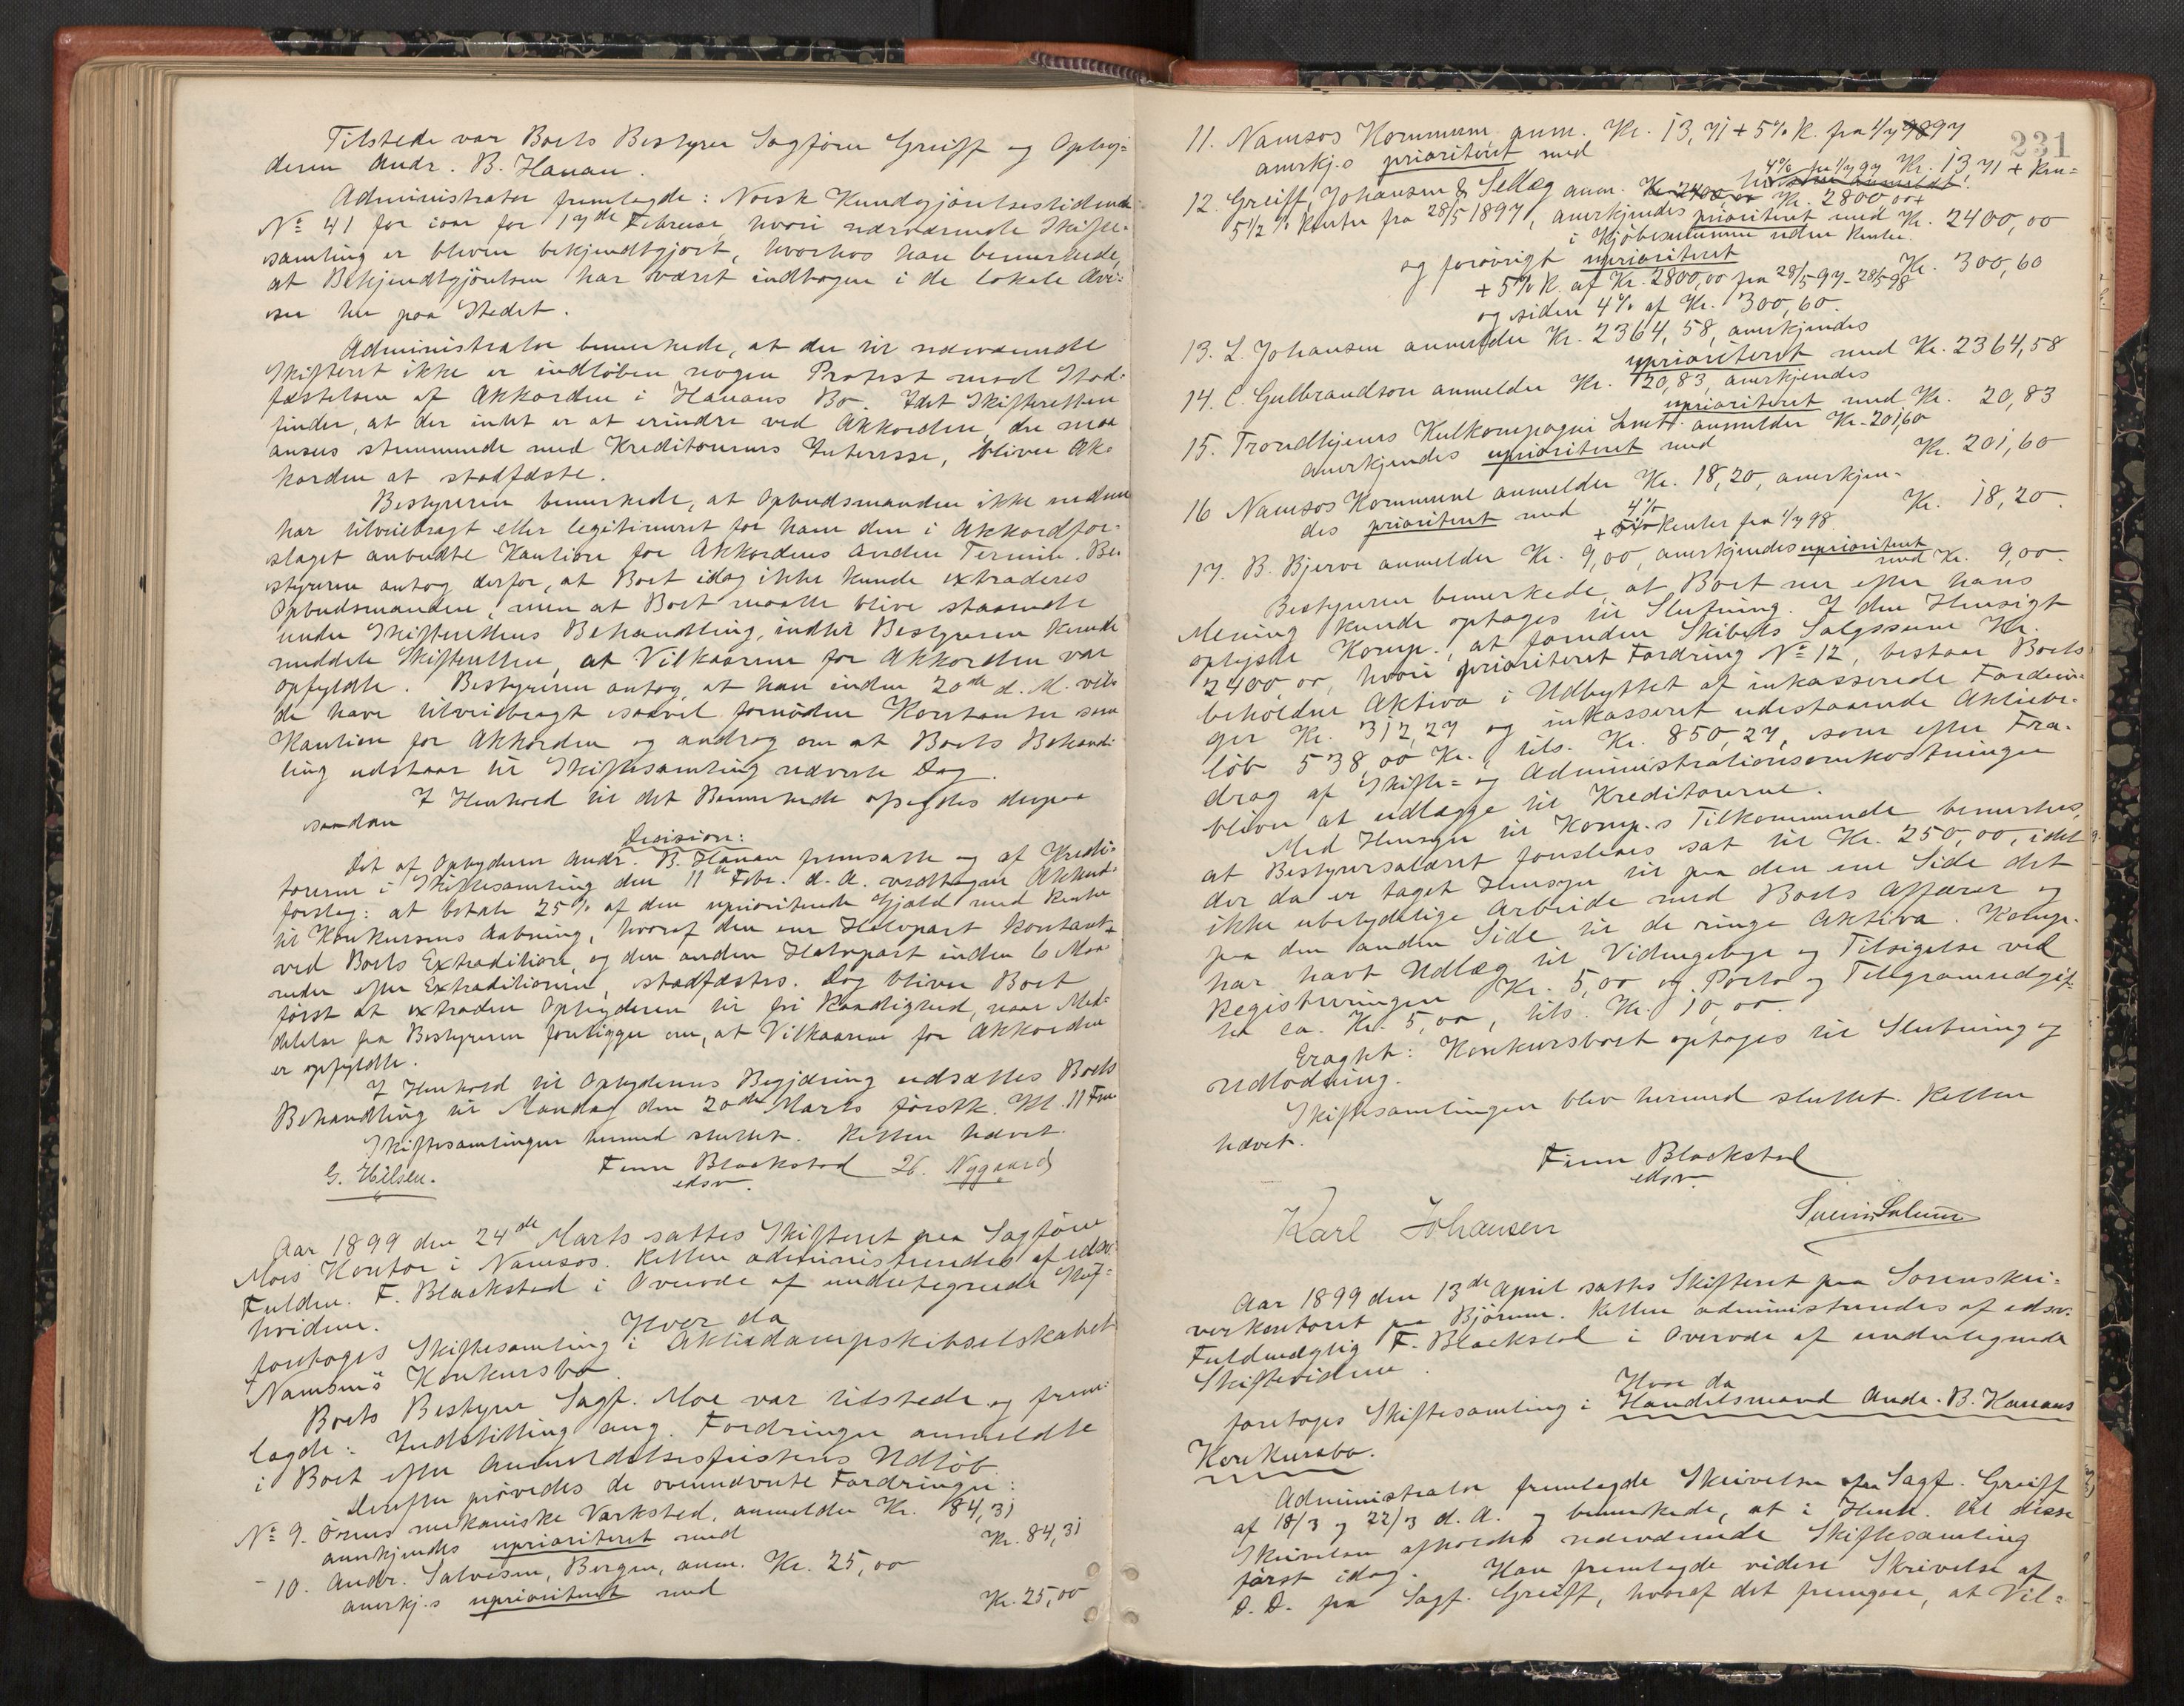 Tilstede var Boets Bestyrer Sagfører Greiff og Opby=
deren Andr. B. Hanan.
Administrator fremlagde: Norsk Kundgjørelsestidende
No 41 for iaar for 17de Februar, hvori nærværende Skifte-
samling er bleven bekjendtgjort, hvorhos han bemerkede,
at Bekjendtgjørelsen har været indtagen i de lokale Avi-
ser her paa Stedet.
Administrator bemerkede, at der til nærværende
Skifteret ikke er indløben nogen Protest mod Stad-
fæstelsen af Akkorden i Hanans Bo. Idet Skifteretten
finder, at der intet er at erindre ved Akkorden, der maa
ansees stemmende med Kreditorernes Interesse, bliver Ak-
korden at stadfæste.
Bestyreren bemerkede, at Opbudsmanden ikke endnu
har tilveiebragt eller legitimeret for ham den i Akkordfor-
slaget anbudte Kaution for Akkordens anden Termin. Be-
styreren antog derfor, at Boet idag ikke kunde extraderes
Opbudsmanden, men at Boet maatte blive staaende
under Skifterettens Behandling, indtil Bestyreren kunde
meddele Skifteretten, at Vilkaarene for Akkorden var
opfyldte. Bestyreren antog, at han inden 20de d. M. vil-
de have tilveiebragt saavel fornøden Kontanter som
Kaution for Akkorden og androg om at Boets Behand-
ling udstaar til Skiftesamling nævnte Dag.
I Henhold til det Bemerkede afsagdes derpaa
saadan
Decision:
Det af Opbyderen Andr. B. Hanan fremsatte og af Kredi-
torerne i Skiftesamling den 11te Febr. d. A. vedtagne Akkord-
forslag: at betale 25% af den uprioriterede Gjæld med Renter
til Konkursens Aabning, hvoraf den ene Halvpart kontant
ved Boets Extradition, og den anden Halvpart inden 6 Maa-
neder efter Extraditionen, stadfæstes. Dog bliver Boet
først at extradere Opbyderen til fri Raadighed, naar Med-
delelse fra Bestyreren foreligger om, at Vilkaarene for Akkorden
er opfyldte.
I Henhold til Opbyderens Begjæring udsættes Boets
Behandling til Mandag den 20de Marts førstk. Kl. 11 Fm.
Skiftesamlingen hermed sluttet. Retten hævet.
G. Hilsen. Finn Blackstad H. Nygaard
edsv.
Aar 1899 den 24de Marts sattes Skifteret paa Sagfører
Moes Kontor i Namsos. Retten administreredes af edsv.
Fuldm. F. Blackstad i Overvær af undertegnede Skif-
tevidner.
Hvor da
foretoges Skiftesamling i Aktiedampskibselskabet
Namsens Konkursbo.
Boets Bestyrer Sagf. Moe var tilstede og frem-
lagde: Indstilling ang. Fordringer anmeldte
i Boet efter Anmeldelsesfristens Udløb.
Derefter prøvedes de ovennævnte Fordringer:
No 9. Ørens mekaniske Værksted, anmelder Kr. 84,31
anerkjendes uprioriteret med Kr. 84,31
- 10. Andr. Salvesen, Bergen, anm. Kr. 25,00
anerkj.s uprioriteret med Kr. 25,00
231
11. Namsos Kommune anm. Kr. 13,71 + 5% R. fra 1/7 97
anerkj.s prioriteret med 4% fra 1/7 97 Kr. 13,71 + Ren-
ter som anmeldt.
12. Greiff, Johansen & Sellæg anm. Kr. 2400,00 Kr. 2800,00 +
5 1/2 % Renter fra 28/5 1897, anerkjendes prioriteret med Kr. 2400,00
i Kjøbesummen uden Renter.
og forøvrigt uprioriteret Kr. 300,60
+ 5% R. af Kr. 2800,00 fra 28/5 97 - 28/5 98
og siden 4% af Kr. 300,60.
13. L. Johansen anmelder Kr. 2364,58, anerkjendes
uprioriteret med Kr. 2364,58
14. C. Gulbrandson anmelder Kr. 20,83, anerkjendes
uprioriteret med Kr. 20,83
15. Trondhjems Kulkompagni Lmtt. anmelder Kr. 201,60
anerkjendes uprioriteret med Kr. 201,60
16 Namsos Kommune anmelder Kr. 18,20, anerkjen-
des prioriteret med Kr. 18,20
4%
+ 5% Renter fra 1/7 98.
17. B. Bjerve anmelder Kr. 9,00, anerkjendes uprioriteret
med Kr. 9,00
Bestyreren bemerkede, at Boet nu efter hans
Mening kunde optages til Slutning. I den Hensigt
oplyste Komp., at foruden Skibets Salgssum Kr.
2400,00, hvori prioriteret Fordring No 12, bestaar Boets
beholdne Aktiva i Udbyttet af inkasserede Fordrin-
ger Kr. 312,27 og inkasseret udestaaende Aktiebe-
løb 538,00 Kr., tils. Kr. 850,27, som efter Fra-
drag af Skifte- og Administrationsomkostninger
bliver at udlægge til Kreditorerne.
Med Hensyn til Komp.s Tilkommende bemerkes,
at Bestyrersalæret foreslaaes sat til Kr. 250,00, idet
der da er taget Hensyn til paa den ene Side det
ikke ubetydelige Arbeide med Boets Affærer og
paa den anden Side til de ringe Aktiva. Komp.
har havt Udlæg til Vidnegebyr og Tilsigelse ved
Registreringen Kr. 5,00 og Porto og Telegramudgif-
ter ca. Kr. 5,00, tils. Kr. 10,00.
Eragtet: Konkursboet optages til Slutning og
Udlodning.
Skiftesamlingen blev hermed sluttet. Retten
hævet.
Finn Blackstad
edsv.
Karl Johansen Svein Salum
Aar 1899 den 13de April sattes Skifteret paa Sorenskri-
verkontoret paa Bjørum. Retten administreredes af edsv.
Fuldmægtig F. Blackstad i Overvær af undertegnede
Skiftevidner.
Hvor da
foretoges Skiftesamling i Handelsmand Andr. B. Hanans
Konkursbo.
Administrator fremlagde Skrivelser fra Sagf. Greiff
af 18/3 og 22/3 d. A. og bemerkede, at i Henh. til disse
Skrivelser afholdes nærværende Skiftesamling
først idag. Han fremlagde videre Skrivelse af
D. D. fra Sagf. Greiff, hvoraf det fremgaar, at Vil-